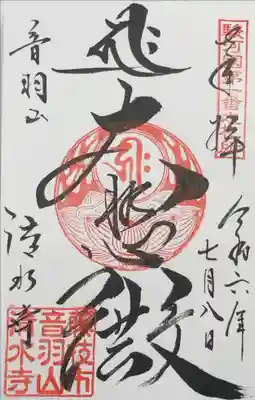 駿河国第一番
奉拝
令和六年
七月八日
大悲殿
音羽山
清水寺
藤枝市
音羽山
清水寺